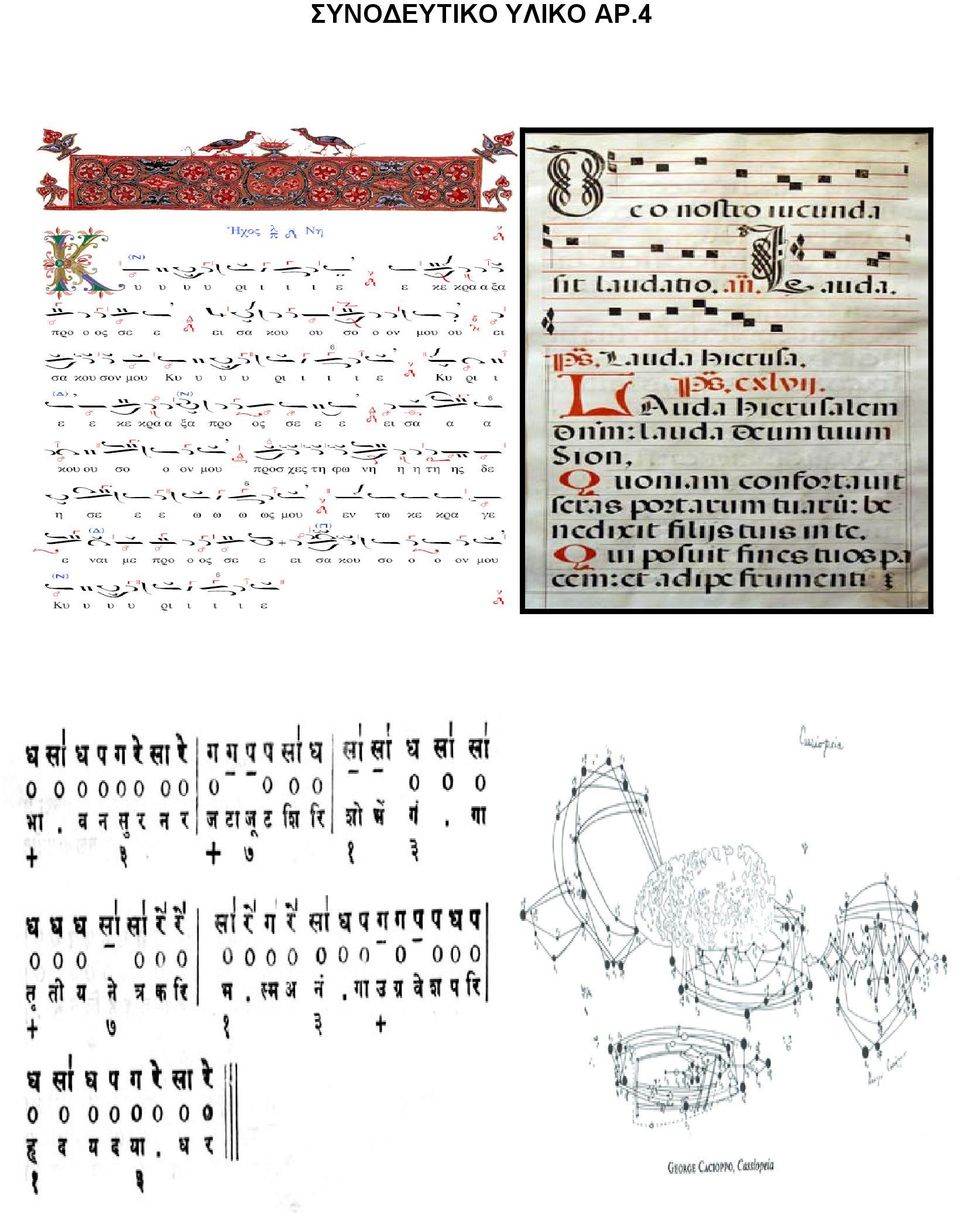 ΣΥΝΟΔΕΥΤΙΚΟ ΥΛΙΚΟ ΑΡ.4
Ἦχος λ π Νη
Κ υ υ υ υ ρι ι ι ι ε ε κε κρα α ξα
προ ο ος σε ε ει σα κου ου σο ο ον μου ου ει
σα κου σον μου Κυ υ υ υ ρι ι ι ι ε Κυ ρι ι
ε ε κε κρα α ξα προ ος σε ε ε ει σα α α
κου ου σο ο ον μου προσ χες τη φω νη η η τη ης δε
η σε ε ε ω ω ω ως μου εν τω κε κρα γε
ε ναι με προ ο ος σε ε ει σα κου σο ο ο ον μου
Κυ υ υ υ ρι ι ι ι ε
D
eo nostro iucunda
sit laudatio. an. Lauda.
ps. Lauda hierusa.
ps. cxlvij.
LAuda hierusalem
dnm: lauda deum tuum
Sion,
Quoniam confortauit
seras portarum tuarū: be
nedixit filijs tuis in te.
Qui posuit fines tuos pa
cem: et adipe frumenti
ध सां ध प ग रे सा रे ग ग प प सां ध सां सां ध सां सां
0 0 0 0 0 0 0 0 0 0 0 0 0 0 0
भा . व न सु र न र ज टा जू ट शि रि शो भें गं . गा
+ ३ + ७ १ ३
ध ध ध सां सां रें रें सां रें गं रें सां ध प ग ग प प ध प
0 0 0 0 0 0 0 0 0 0 0 0 0 0 0 0 0
तृ ती य ने त्र क रि म . स्म अ नं . गा उ ग्र वे श प रि
+ ७ १ ३ +
ध सां ध प ग रे सा रे
0 0 0 0 0 0 0 0
हृ द य द या . ध र
१ ३
Cassiopeia
GEORGE CACIOPPO, Cassiopeia